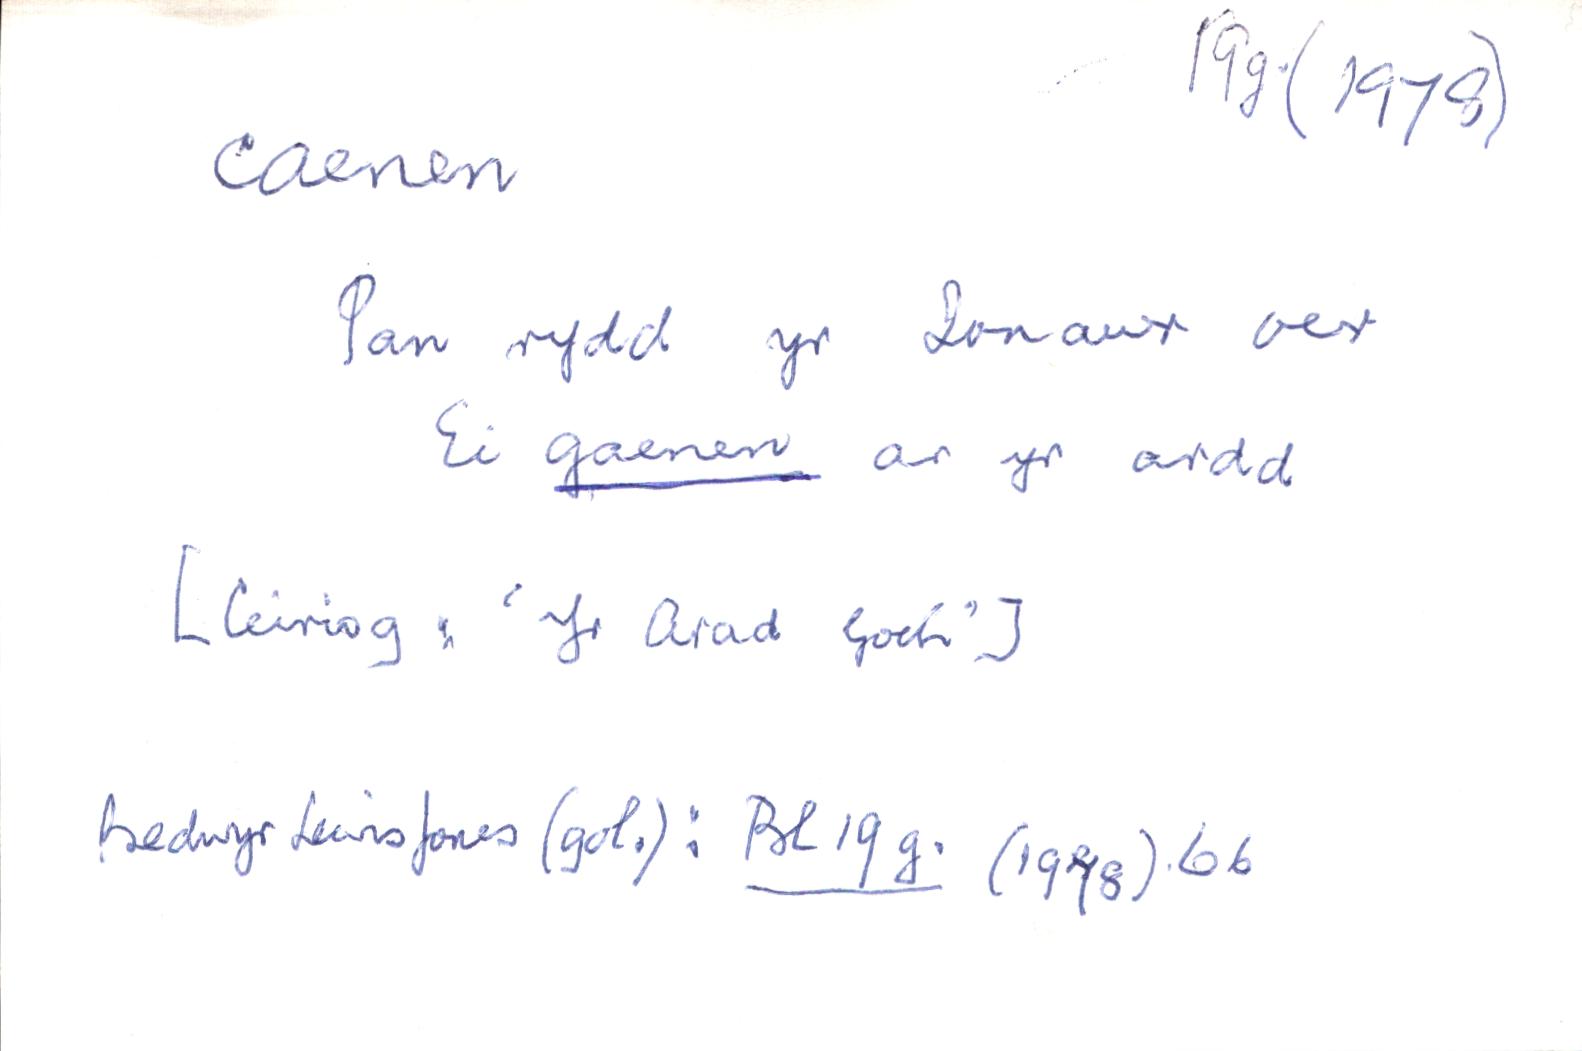 19g. (1978)
caenen
Pan rydd yr Ionawr oer
Ei gaenen ar yr ardd
[Ceiriog: 'Yr Arad Goch']
Bedwyr Lewis Jones (gol.): Bl 19 g. (1978). 66